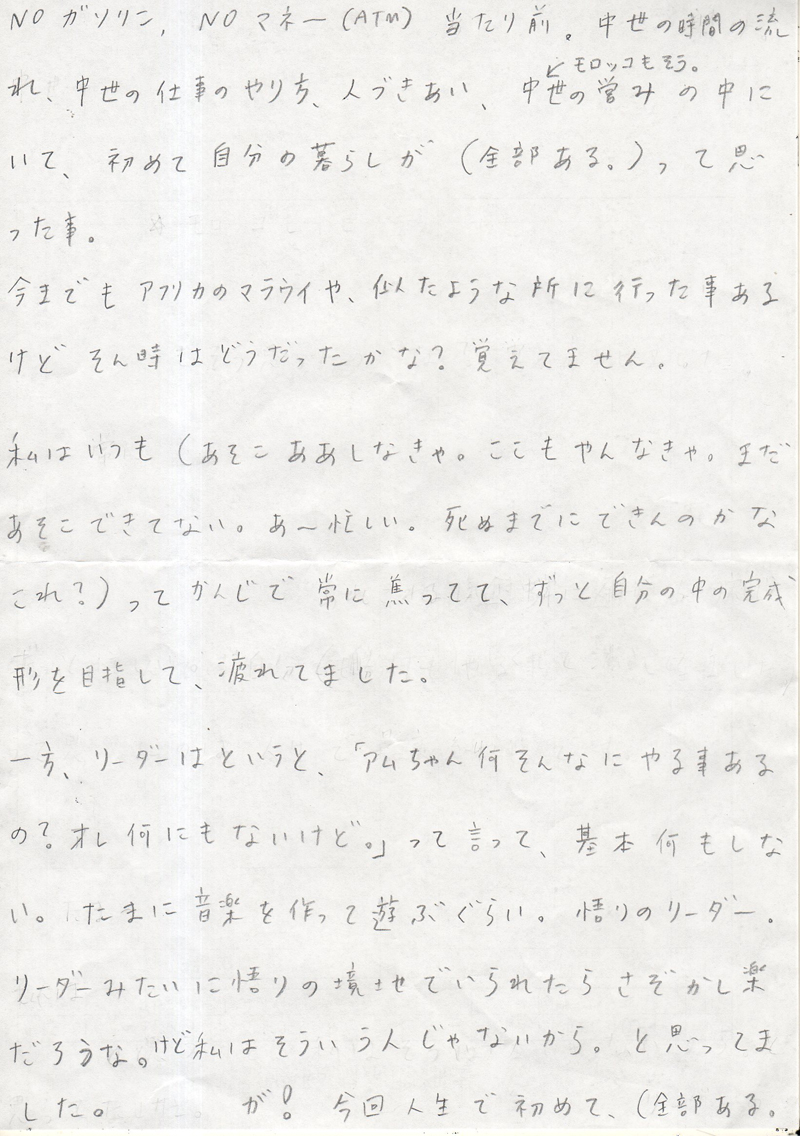 NO ガソリン, NO マネー(ATM) 当たり前。中世の時間の流
↙モロッコもそう。
れ、中世の仕事のやり方、人づきあい、中世の営みの中に
いて、初めて自分の暮らしが(全部ある。)って思
った事。
今までもアフリカのマラウイや、似たような所に行った事ある
けど そん時はどうだったかな?覚えてません。
私はいつも(あそこああしなきゃ。ここもやんなきゃ。まだ
あそこできてない。あ〜忙しい。死ぬまでにできんのかな
これ?)ってかんじで常に焦ってて、ずっと自分の中の完成
形を目指して、疲れてました。
一方、リーダーはというと、「アムちゃん何そんなにやる事ある
の?オレ何にもないけど。」って言って、基本何もしな
い。たまに音楽を作って遊ぶぐらい。悟りのリーダー。
リーダーみたいに悟りの境地でいられたらさぞかし楽
だろうな。けど私はそういう人じゃないから。と思ってま
した。 が! 今回人生で初めて、(全部ある。